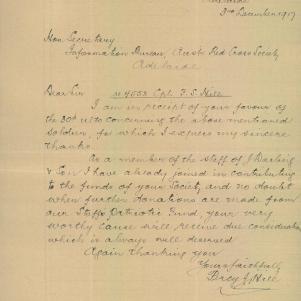 Adelaide
3rd December 1917
Hon. Secretary
Information Bureau, Aust. Red Cross Society
Adelaide
Dear Sir No 4553 Cpl. F. S. Hill
I am in receipt of your favour of
the 30th ulto concerning the above mentioned
soldier, for which I express my sincere
thanks.
As a member of the staff of J Darling
& Son I have already joined in contributing
to the funds of your Society, and no doubt
when further donations are made from
our Staffs Patriotic Fund, your very
worthy cause will receive due consideration
which is always well deserved
Again thanking you
Yours faithfully
Hill